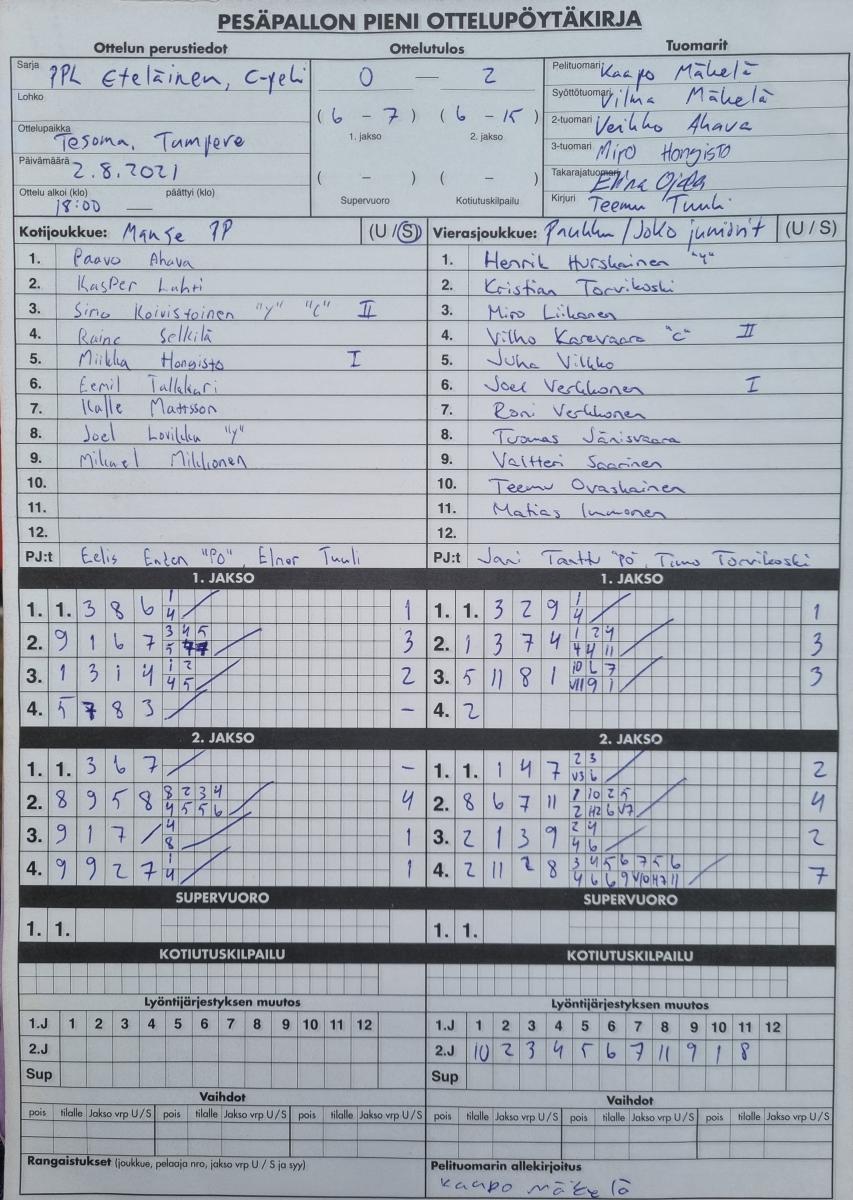 PESÄPALLON PIENI OTTELUPÖYTÄKIRJA
Ottelun perustiedot Ottelutulos Tuomarit
Sarja PPL Eteläinen, C-peli
Lohko
Ottelupaikka Tesoma, Tampere
Päivämäärä 2.8.2021
Ottelu alkoi (klo) päättyi (klo)
18:00 —
0 — 2
( 6 – 7 ) ( 6 – 15 )
1. jakso 2. jakso
( – ) ( – )
Supervuoro Kotiutuskilpailu
Pelituomari Kaapo Mäkelä
Syöttötuomari Vilma Mäkelä
2-tuomari Veikko Ahava
3-tuomari Miro Hongisto
Takarajatuomari Elina Ojala
Kirjuri Teemu Tuuli
Kotijoukkue: Manse PP (U / S)
1. Paavo Ahava
2. Kasper Lahti
3. Simo Koivistoinen "Y" "C" II
4. Raine Selkilä
5. Miikka Hongisto I
6. Eemil Tallkkari
7. Kalle Mattsson
8. Joel Lovikka "Y"
9. Mikael Mikkonen
10.
11.
12.
PJ:t Eelis Enden "PO", Elmer Tuuli
Vierasjoukkue: Paukku/Joko juniorit (U / S)
1. Henrik Hurskainen "Y"
2. Kristian Torvikoski
3. Miro Liikanen
4. Vilho Karevaara "C" II
5. Juha Vilkko
6. Joel Verkkonen I
7. Roni Verkkonen
8. Tuomas Jänisvaara
9. Valtteri Saarinen
10. Teemu Ovaskainen
11. Matias Immonen
12.
PJ:t Jani Tanttu "PO", Timo Torvikoski
1. JAKSO 1. JAKSO
1. 1. 3 8 6 1 4 1
2. 9 1 6 7 3 4 5 5 7 3
3. 1 3 1 4 1 2 4 5 2
4. 5 7 8 3 –
1. 1. 3 2 9 1 4 1
2. 1 3 7 4 1 2 4 4 4 11 3
3. 5 11 8 1 10 6 7 V11 9 1 3
4. 2
2. JAKSO 2. JAKSO
1. 1. 3 6 7 –
2. 8 9 5 8 8 2 3 4 4 5 5 6 4
3. 9 1 7 4 8 1
4. 9 9 2 7 1 4 1
1. 1. 1 4 7 2 3 V3 6 2
2. 8 6 7 11 1 10 2 5 2 H2 6 V7 4
3. 2 1 3 9 2 4 4 6 2
4. 2 11 2 8 3 4 5 6 7 5 6 4 6 6 9 V10 H7 11 7
SUPERVUORO SUPERVUORO
1. 1. 1. 1.
KOTIUTUSKILPAILU KOTIUTUSKILPAILU
Lyöntijärjestyksen muutos Lyöntijärjestyksen muutos
1.J 1 2 3 4 5 6 7 8 9 10 11 12 1.J 1 2 3 4 5 6 7 8 9 10 11 12
2.J 2.J 10 2 3 4 5 6 7 11 9 1 8
Sup Sup
Vaihdot Vaihdot
pois tilalle Jakso vrp U / S pois tilalle Jakso vrp U / S pois tilalle Jakso vrp U / S pois tilalle Jakso vrp U / S pois tilalle Jakso vrp U / S pois tilalle Jakso vrp U / S
Rangaistukset (joukkue, pelaaja nro, jakso vrp U / S ja syy) Pelituomarin allekirjoitus
Kaapo Mäkelä